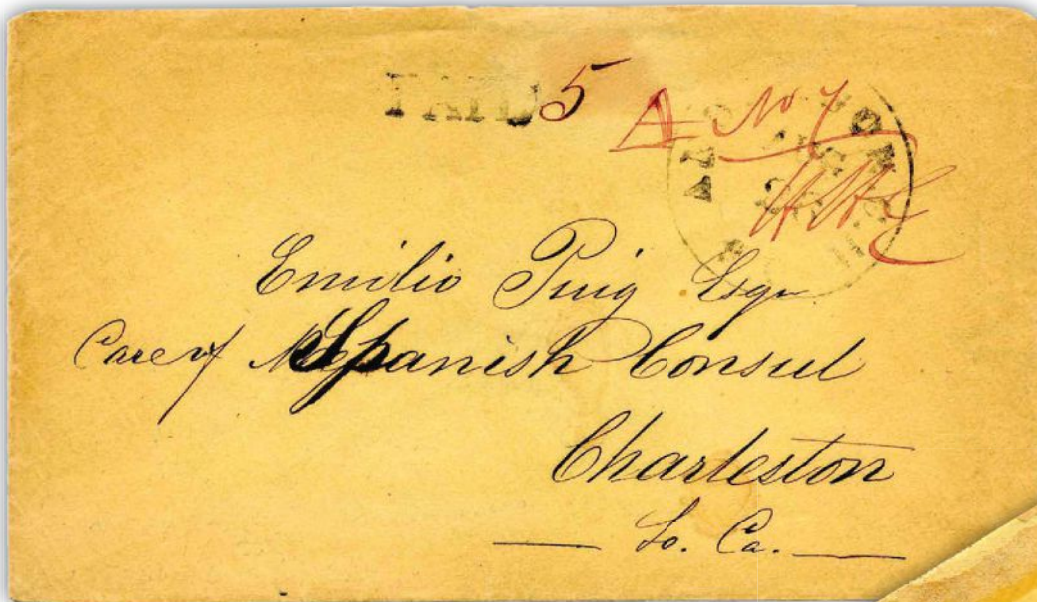 PAID 5
A No 7
AUG
Emilio Puig Esqr
Care of Spanish Consul
Charleston
So. Ca.